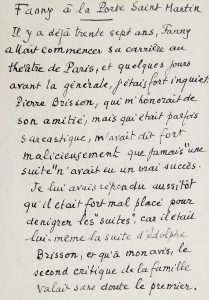 Fanny à la Porte Saint Martin
Il y a déjà trente sept ans, Fanny
allait commencer sa carrière au
théâtre de Paris, et quelques jours
avant la générale, j'étais fort inquiet.
Pierre Brisson, qui m'honorait de
son amitié, mais qui était parfois
sarcastique, m'avait dit fort
malicieusement que jamais "une
suite" n'avait eu un vrai succès.
Je lui avais répondu aussitôt
qu'il était fort mal placé pour
dénigrer les "suites", car il était
lui-même la suite d'Adolphe
Brisson, et qu'à mon avis, le
second critique de la famille
valait sans doute le premier.